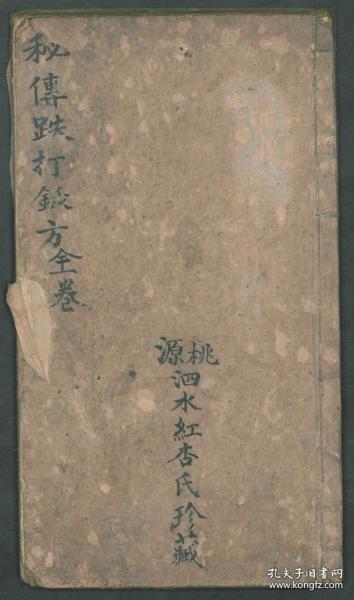 秘傳跌打錢方全卷
桃源泗水紅杏氏珍藏
孔夫子旧书网